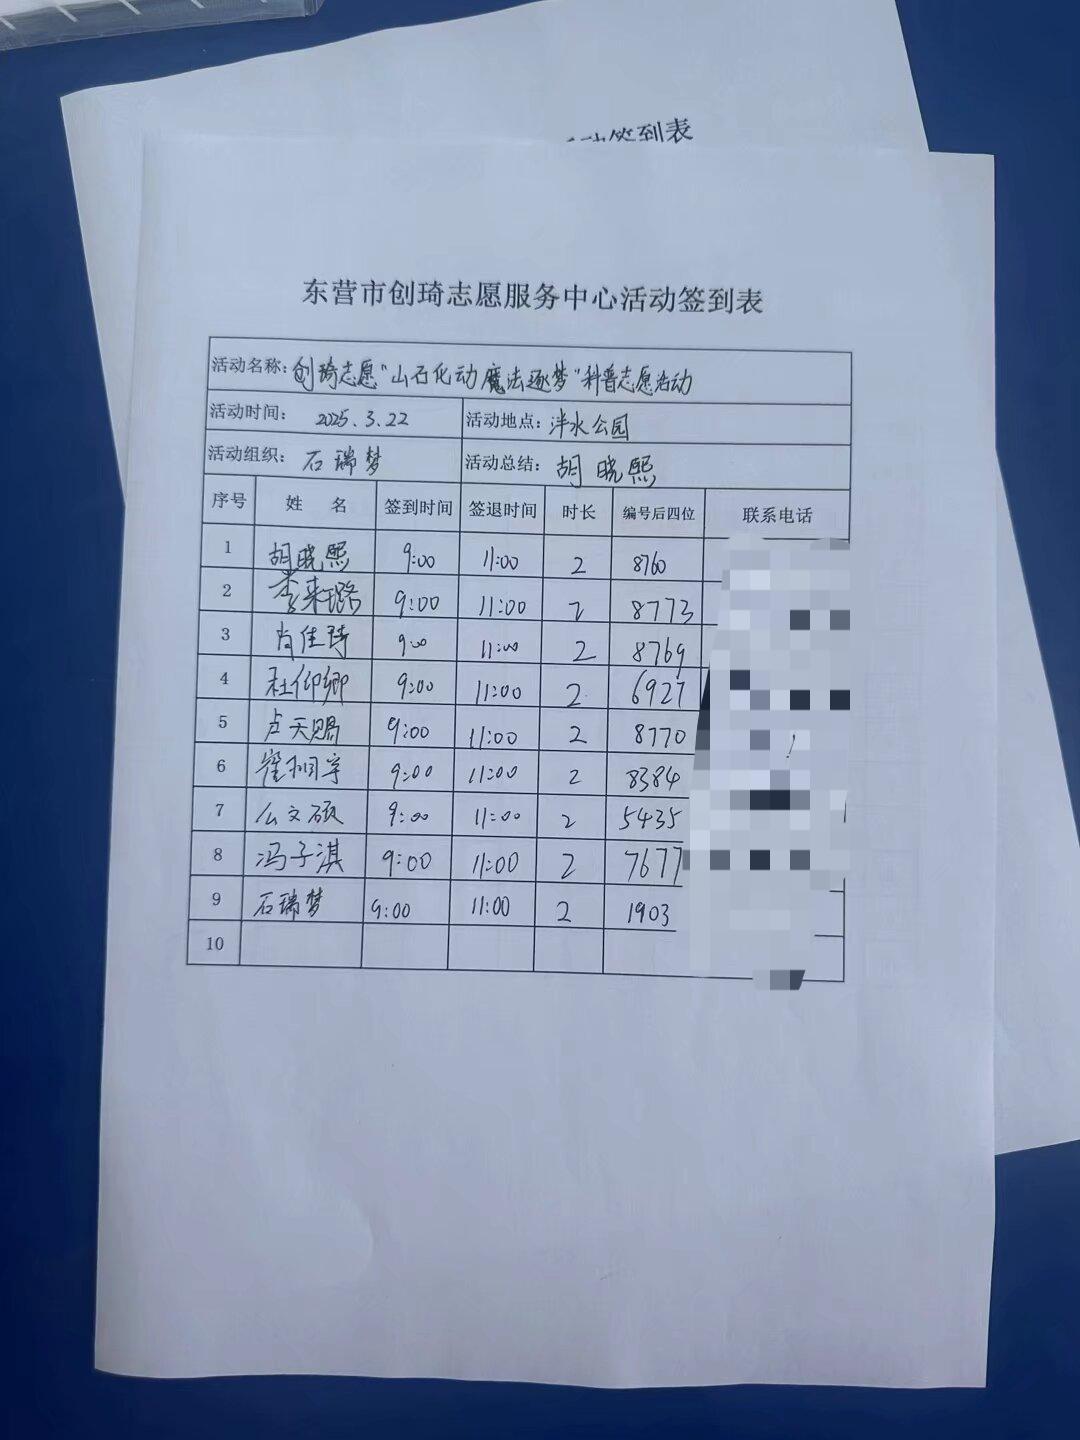 动签到表
东营市创琦志愿服务中心活动签到表
活动名称：创琦志愿“山石化动 魔法逐梦”科普志愿活动
活动时间： 2025.3.22 活动地点：泮水公园
活动组织： 石瑞梦 活动总结：胡晓熙
序号 姓 名 签到时间 签退时间 时长 编号后四位 联系电话
1 胡晓熙 9:00 11:00 2 8760
2 李来璐 9:00 11:00 2 8773
3 肖佳琦 9:00 11:00 2 8769
4 杜仰卿 9:00 11:00 2 6927
5 卢天赐 9:00 11:00 2 8770
6 9:00 11:00 2 8384
7 公文硕 9:00 11:00 2 5435
8 冯子淇 9:00 11:00 2 7677
9 石瑞梦 9:00 11:00 2 1903
10